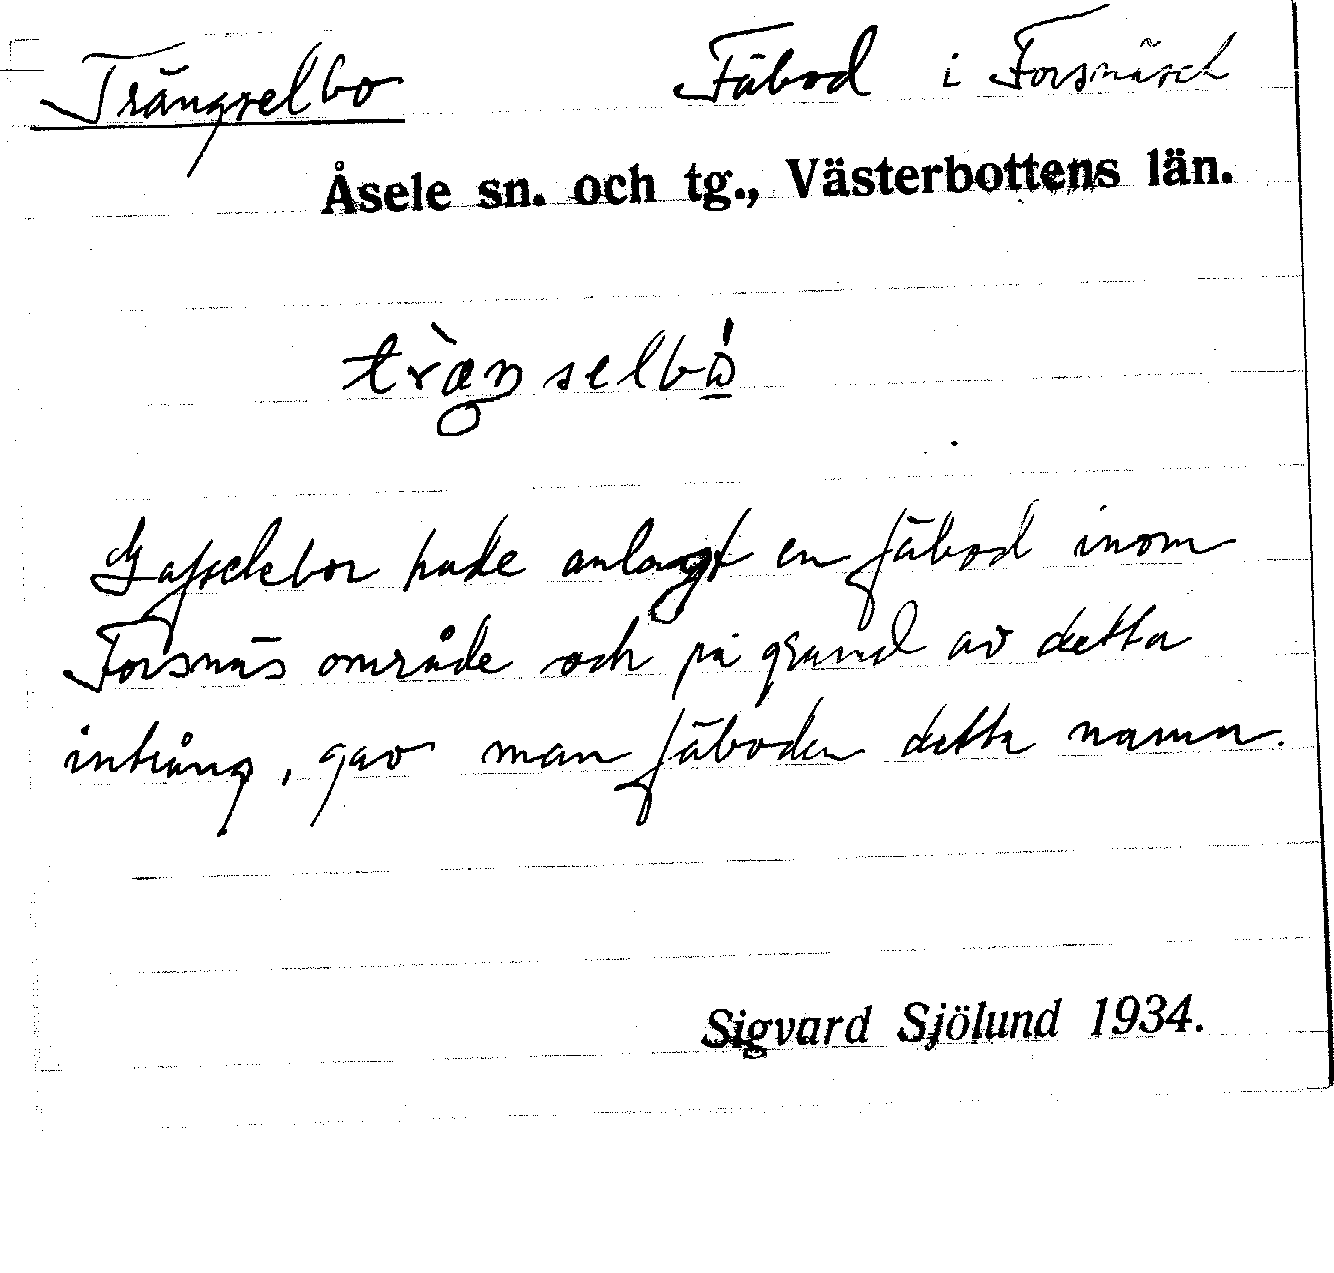 Trängselbo Fäbod i Forsnäset
Åsele sn. och tg., Västerbottens län.
Gafselebor hade anlagt en fäbod inom
Forsnäs område och på grund av detta
intrång, gav man fäboden detta namn.
Sigvard Sjölund 1934.